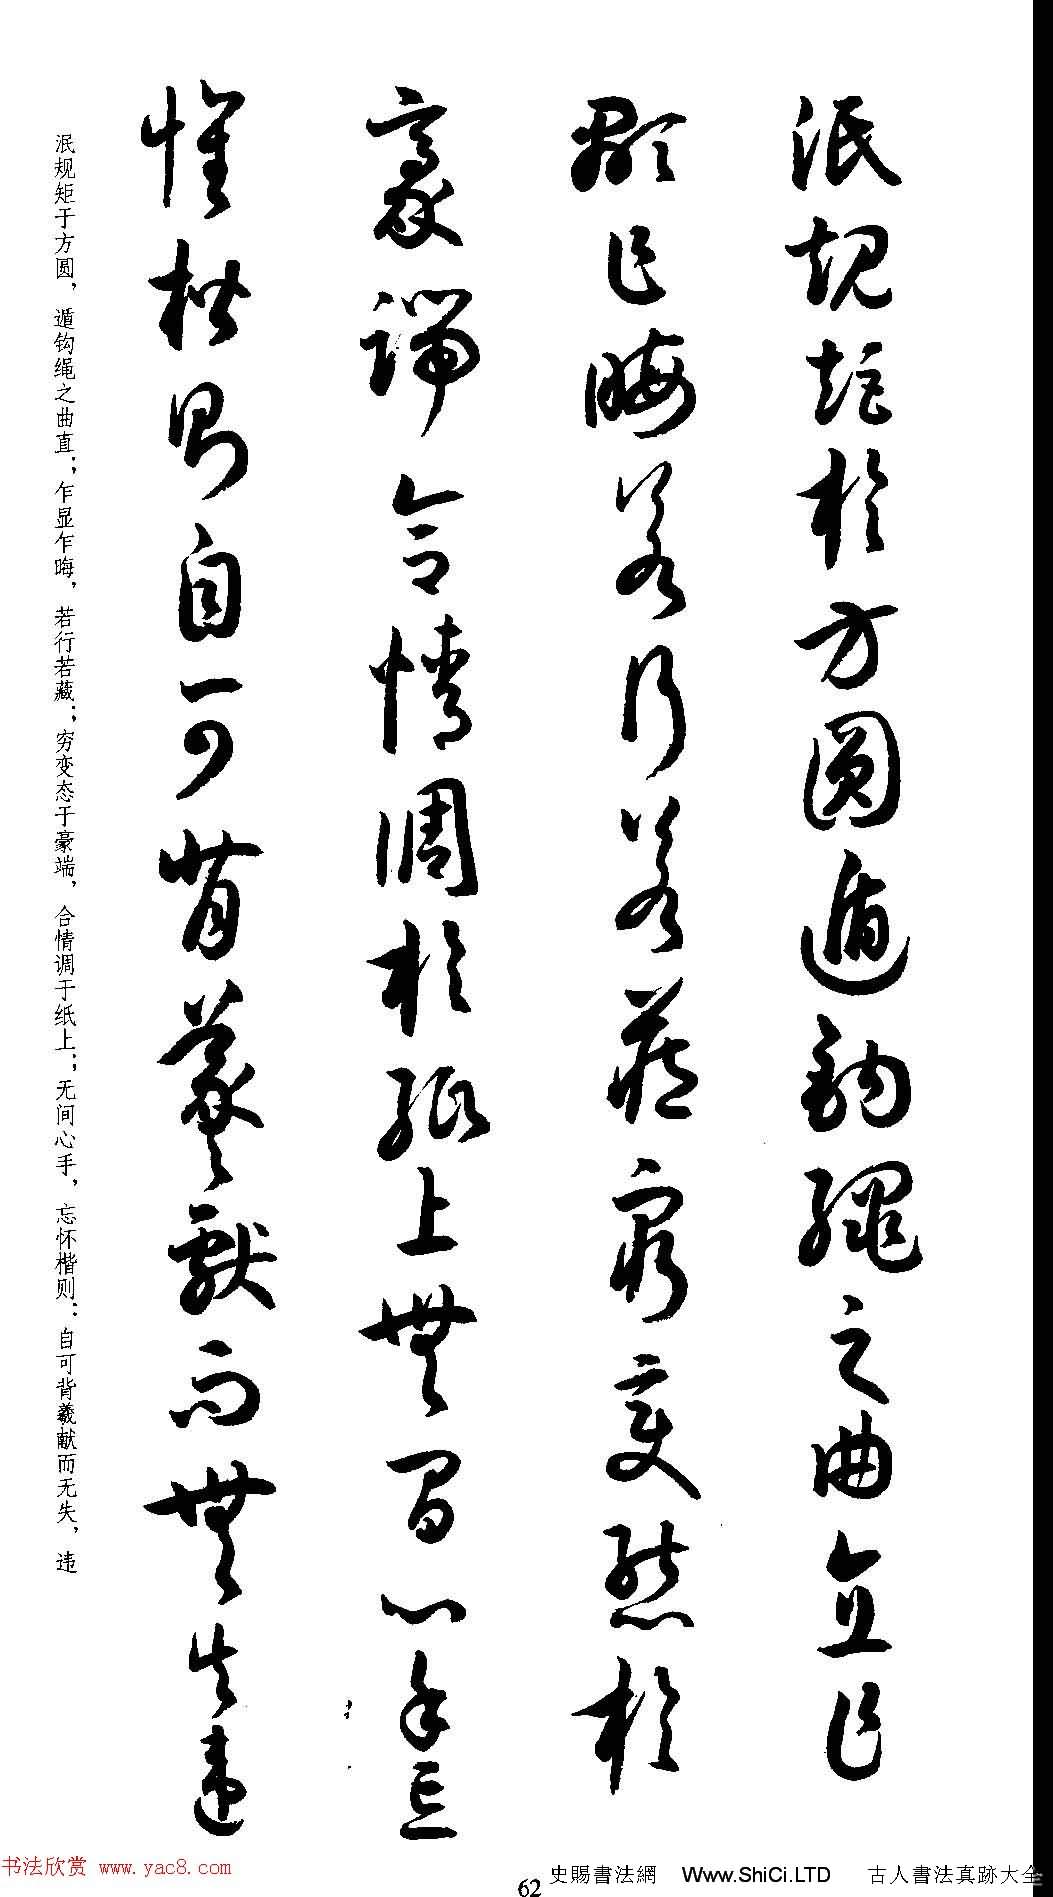 泯規矩於方圓遁鉤繩之曲直乍
顯乍晦若行若藏窮變態於
豪端合情調於紙上無間心手忘
懷楷則自可背羲獻而無失違
泯规矩于方圆，遁钩绳之曲直；乍显乍晦，若行若藏；穷变态于豪端，合情调于纸上；无间心手，忘怀楷则：自可背羲献而无失，违
书法欣赏 www.yac8.com
62
史賜書法網 Www.ShiCi.LTD 古人書法真跡大全